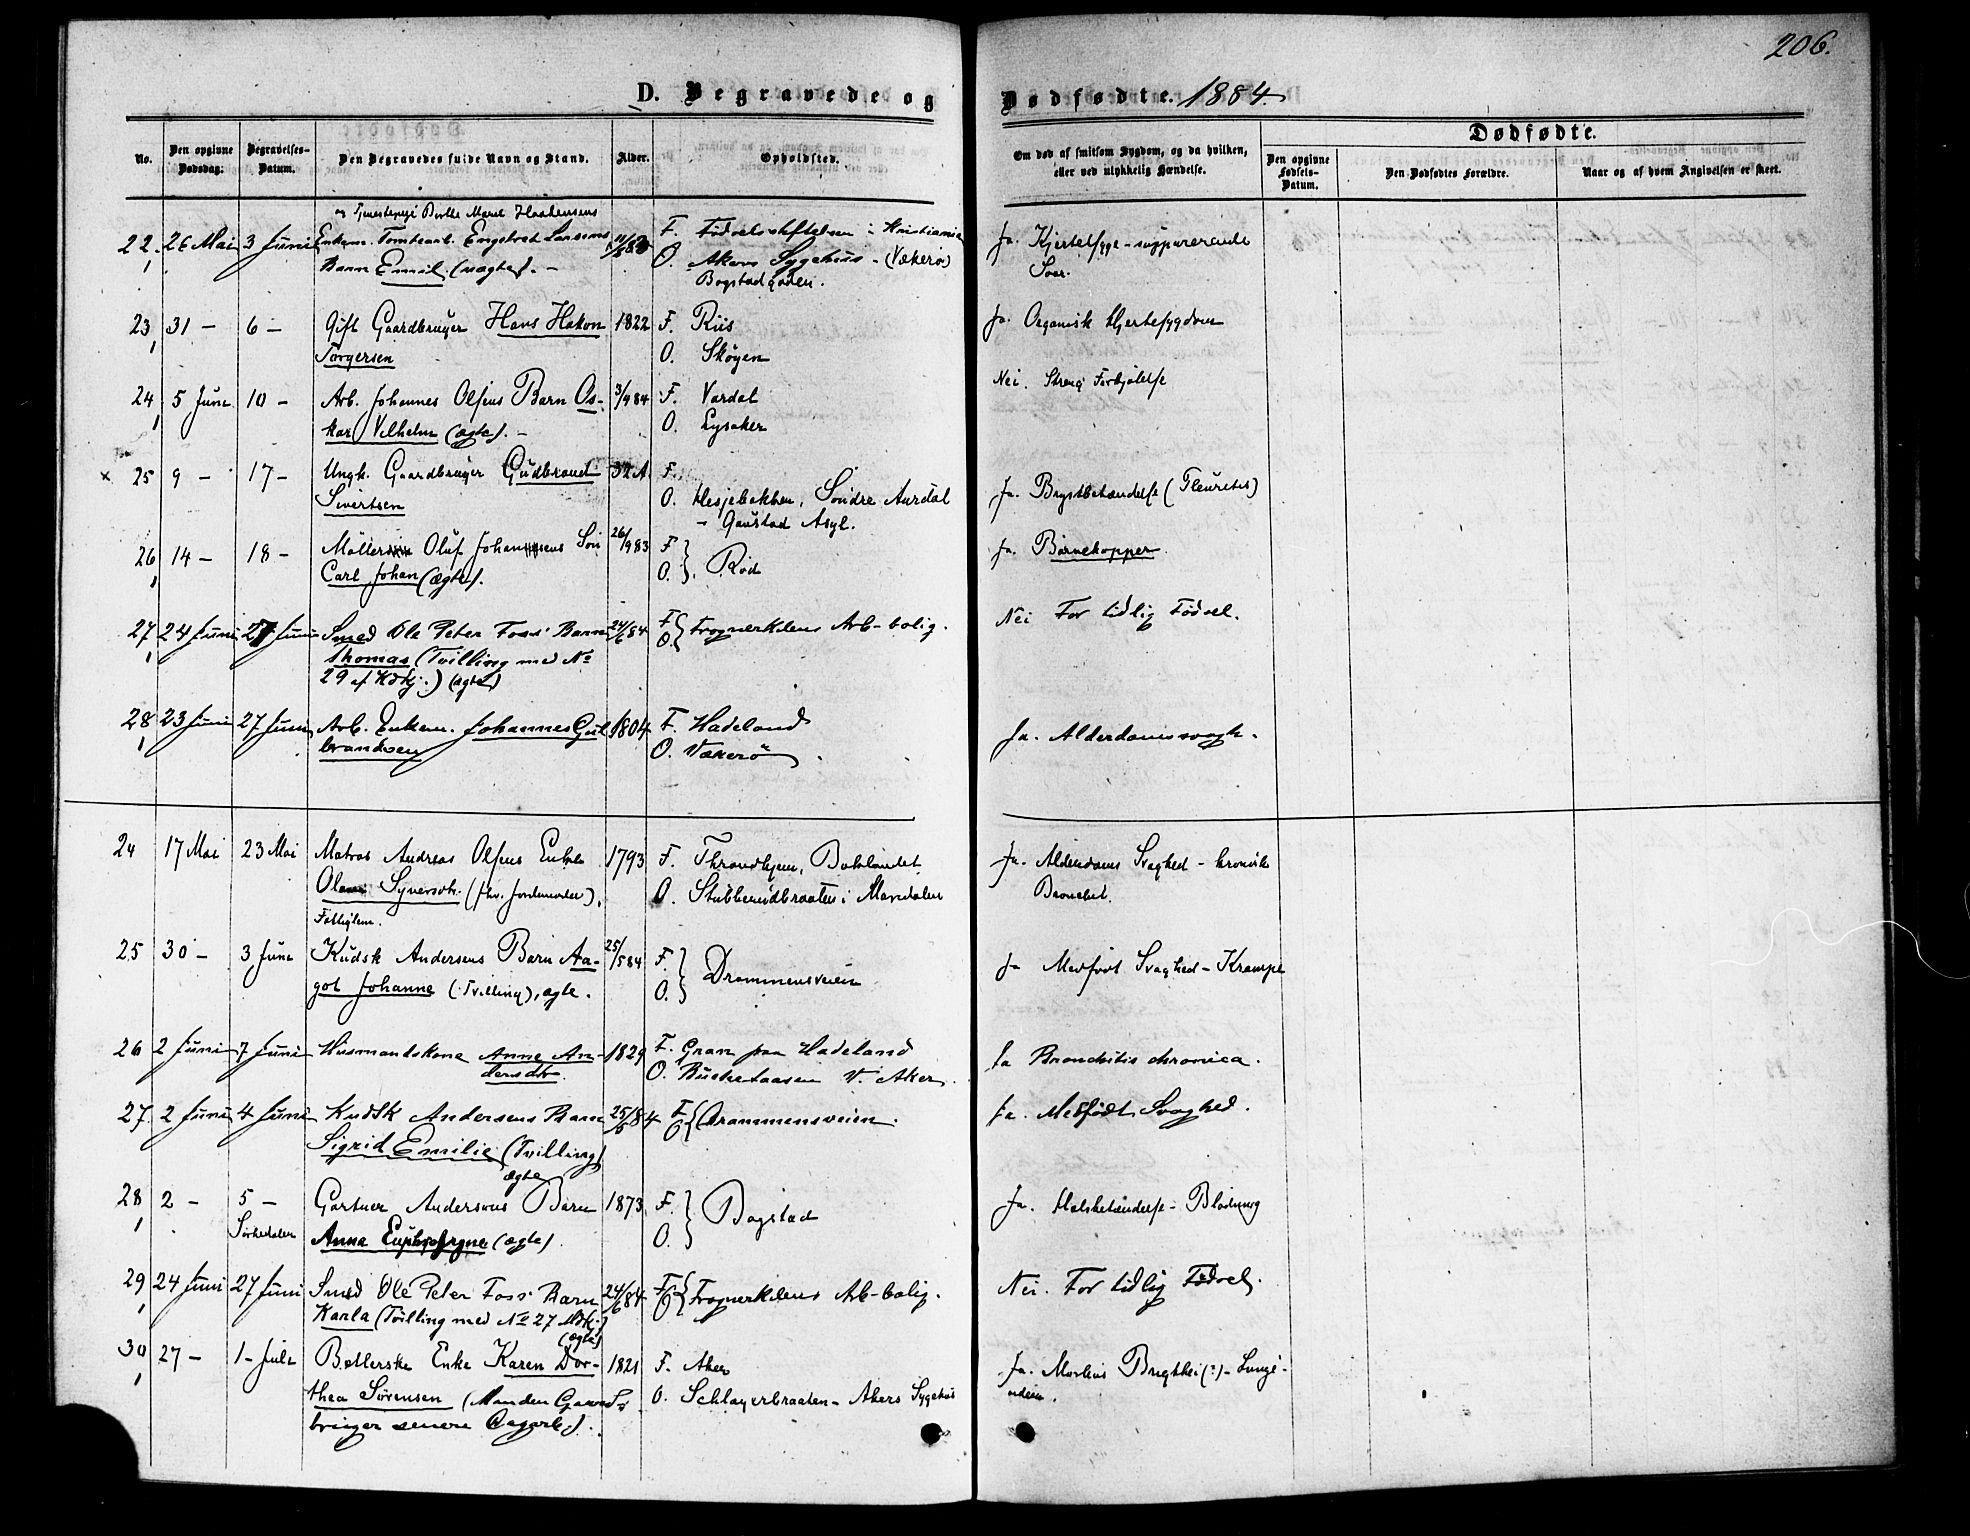 206.
D. Begravede og
Dødfødte. 1884.
Dødfødte.
No.
Den opgivne Dødsdag.
Begravelses-Datum.
Den Begravedes fulde Navn og Stand.
Alder.
Opholdsted.
Om død af smitsom Sygdom, og da hvilken, eller ved ulykkelig Hændelse.
Den opgivne Fødsels-Datum.
Den Dødfødtes Forældre.
Naar og af hvem Angivelsen er skeet.
og Tjenestepige Berthe Marie Haakensens
22. 26 Mai 3 Juni Enkem. Tomtearb. Engebret Larsens F. Fødselsstiftelsen i Kristiania Ja. Kjertelsyge - suppurerende
Barn Emil (uægte). - O. Akers Sygehus - (Vækerø) Saar.
Bogstadgaden.
23 31 - 6 - Gift Gaardbruger Hans Hakon 1822 F. Riis Ja. Organisk Hjertesygdom
Torgersen O. Skøyen
24 5 Juni 10 - Arb. Johannes Olsens Barn Os- 3/4 84 F. Vardal Nei. Streng Forkjølelse
kar Vilhelm (ægte). - O. Lysaker
25 9 - 17 - Ungk. Gaardbruger Gudbrand 32 A. F.
Sivertsen O. Hesjebakken, Søndre Aurdal Ja. Brystbetændelse (Pleurites)
- Gaustad Asyl.
26 14 - 18 - Møller Oluf Johansens Søn 26/9 83 F. Ja. Børnekopper.
Carl Johan (ægte). O. Rød
27 24 Juni 27 Juni Smed Ole Peter Foss' Barn 24/6 84 F. O. Frognerkilens Arb-bolig. Nei For tidlig Fødsel.
Thomas (Tvilling med No
29 af Kvkj.) (ægte)
28 23 Juni 27 Juni Arb. Enkem. Johannes Gul 1804 F. Hadeland Ja. Alderdomssvagh.
brandsen O. Vækerø
24 17 Mai 23 Mai Matros Andreas Olsens Enke 1793 F. Throndhjem, Baklandet Ja. Alderdoms Svaghed - kronisk
Olava Syversdt. (fhv. Jordemoder), O. Stubberudbraaten i Maridalen Bronchit.
Fattiglem.
25 30 - 3 Juni Kudsk Andersens Barn Aa- 25/5 84 F. Ja Medfødt Svaghed - Krampe
got Johanne (Tvilling), ægte. O. Drammensveien
26 2 Juni 7 Juni Husmandskone Anne An- 1829 F. Gran paa Hadeland Ja Bronchitis chronica.
dersdtr. O. V. Aker.
27. 2 Juni 4 Juni Kudsk Andersens Barn 25/5 84 F. O. Drammensveien. Ja. Medfødt Svaghed.
Sigrid Emilie (Tvilling)
ægte
28 2 - 5 - Gartner Andersons Barn 1873 F. Bogstad Ja. Halsbetændelse - Blødning
Sørkedalen Anna (ægte). O.
29 24 Juni 27 Juni Smed Ole Peter Foss' Barn 24/6 84 F. O. Frognerkilens Arb-bolig. Nei. For tidlig Fødsel.
Karla (Tvilling med No 27 Mdkj.)
(ægte)
30 27 - 1 - Juli Betlerske Enke Karen Dor- 1821 F. Aker Ja. Morbus Brightii (?) - Lunge-
thea Sørensen (Manden Gaard- O. Schlagerbraaten - Akers Sygehus ødem.
bruger senere Dagarb.).